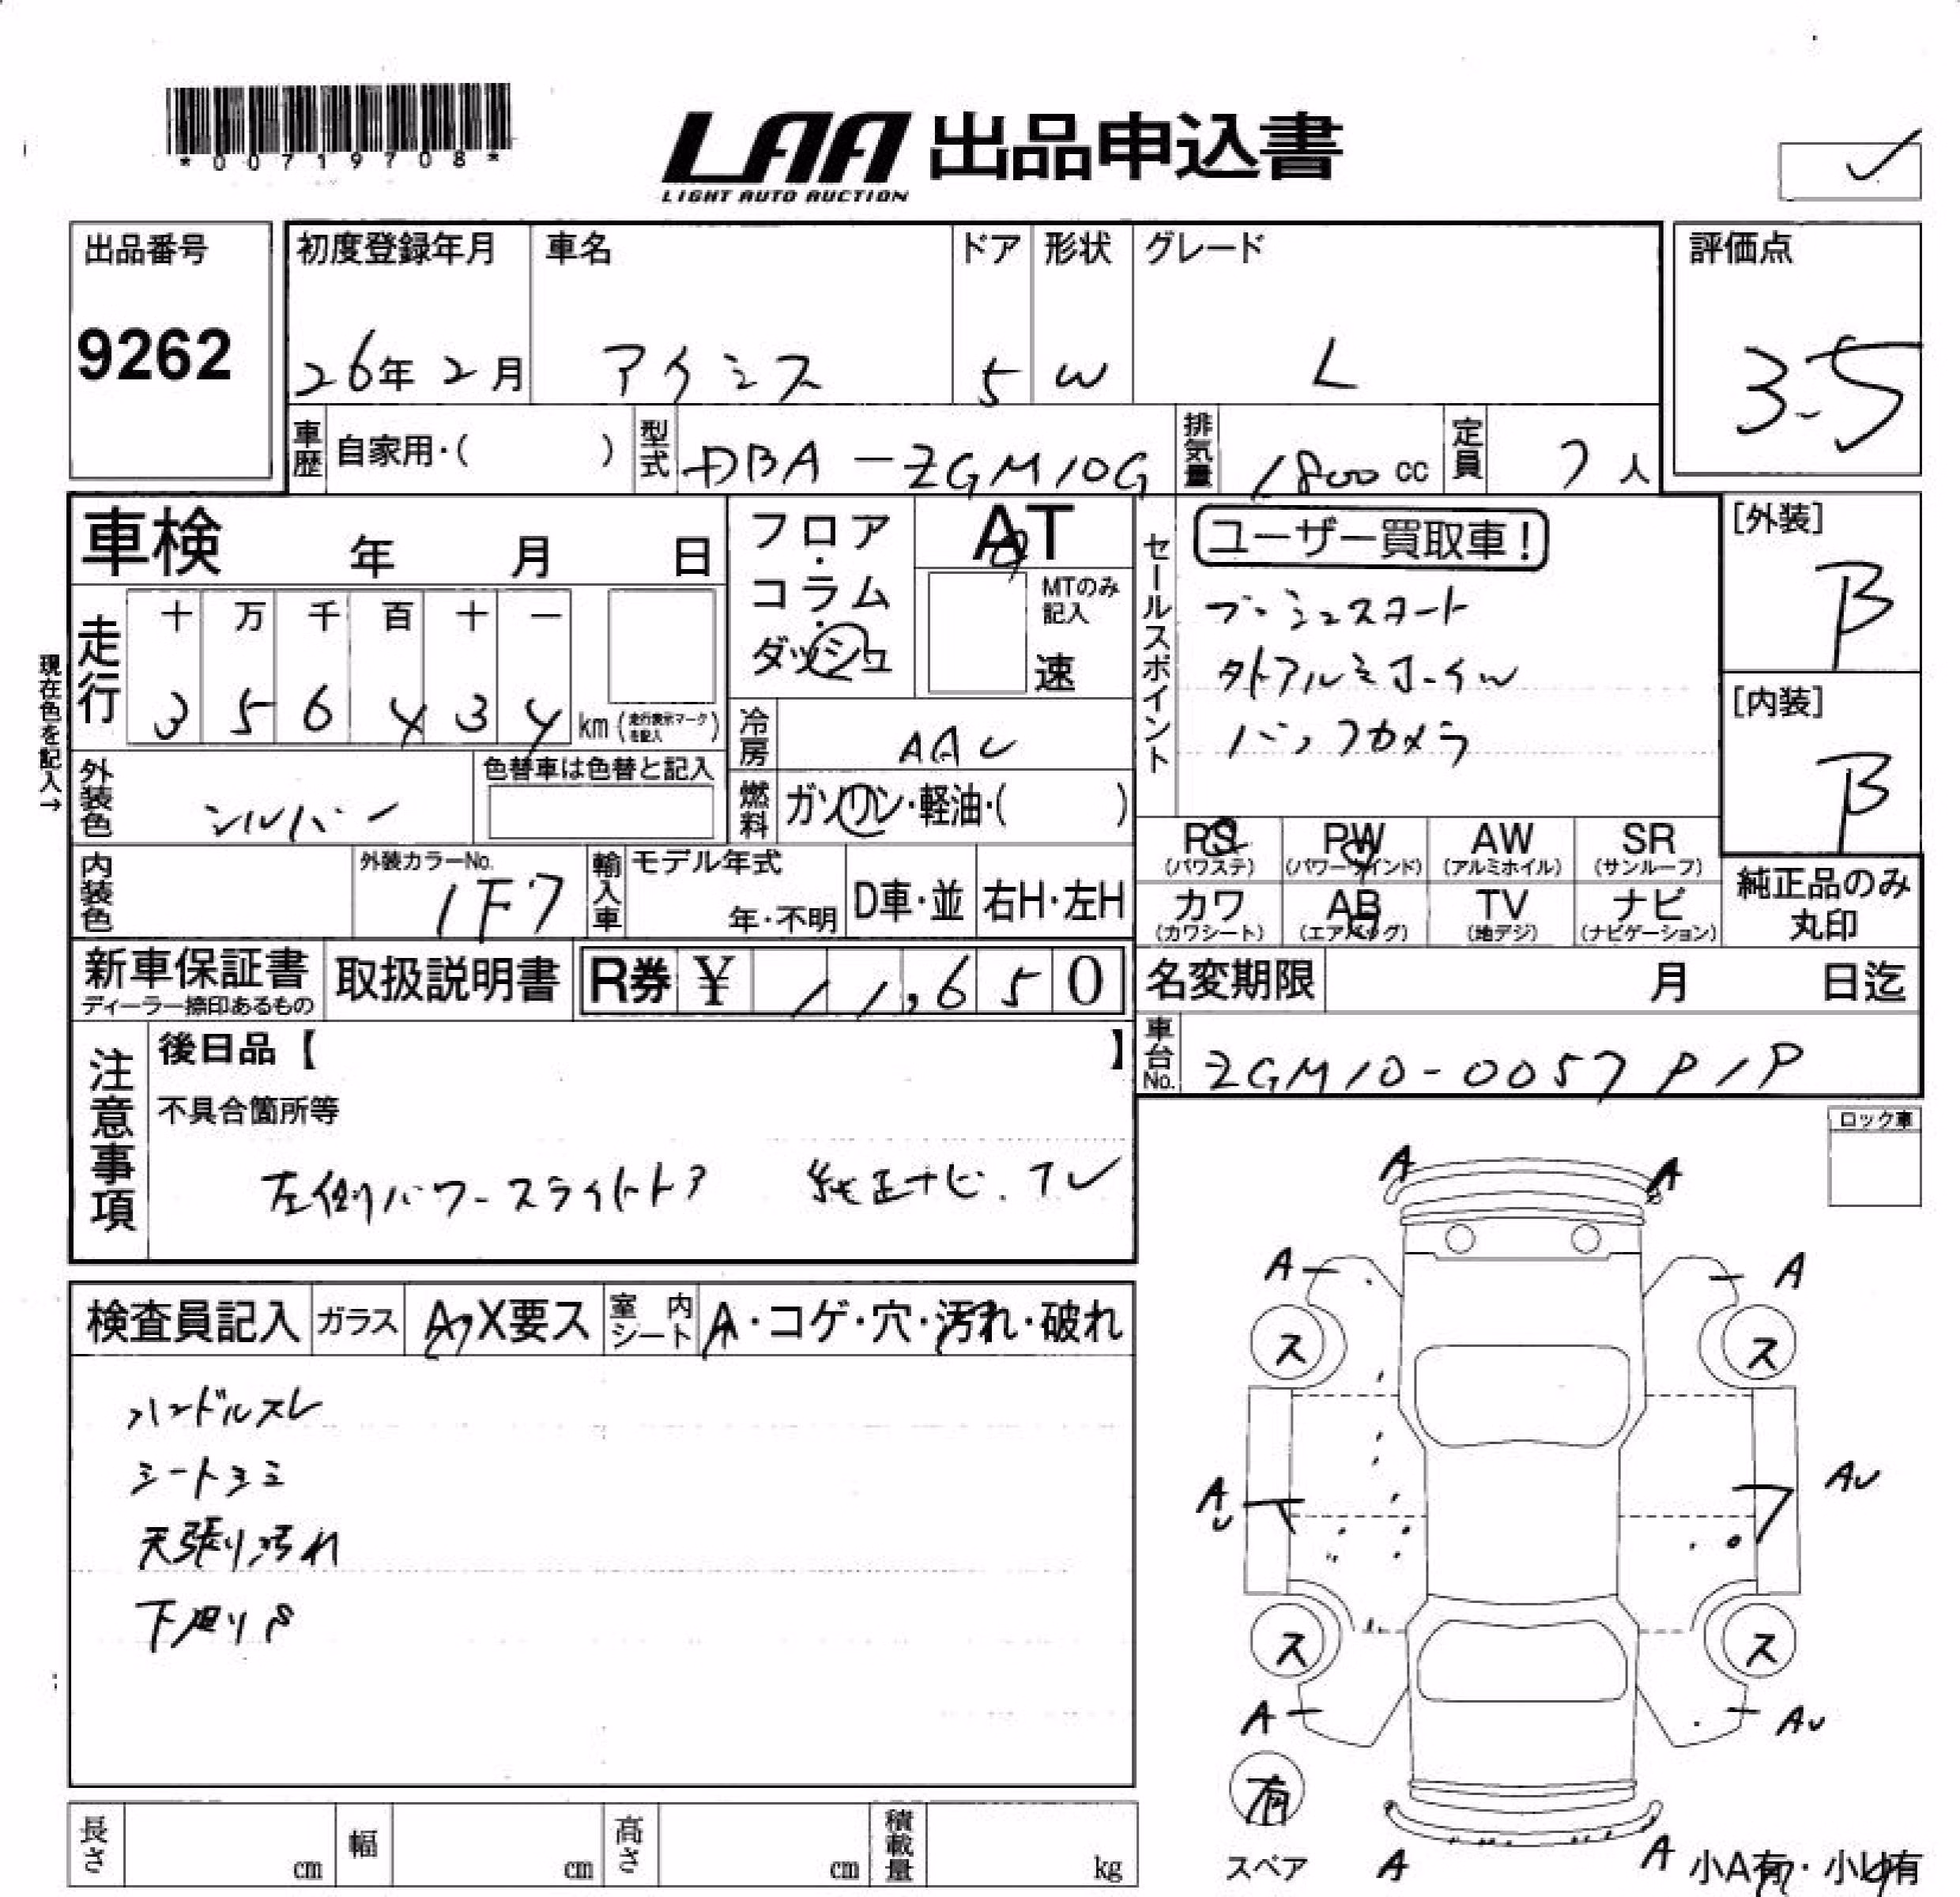 *00719708*
LAA 出品申込書
LIGHT AUTO AUCTION
出品番号
9262
初度登録年月
26年 2月
車名
アイシス
ドア
5
形状
W
グレード
L
評価点
3.5
車歴
自家用・( )
型式
DBA-ZGM10G
排気量
1800cc
定員
7人
車検 年 月 日
フロア・コラム・ダッシュ
AT
MTのみ記入
速
セールスポイント
ユーザー買取車!
プッシュスタート
タトアルミホイル
バックカメラ
[外装]
B
[内装]
B
現在色を記入→
走行
十 万 千 百 十 一
3 5 6 4 3 4 km (走行表示マークを記入)
冷房
AAC
外装色
シルバー
色替車は色替と記入
燃料
ガソリン・軽油・( )
PS (パワステ)
PW (パワーウインド)
AW (アルミホイル)
SR (サンルーフ)
カワ (カワシート)
AB (エアバッグ)
TV (地デジ)
ナビ (ナビゲーション)
純正品のみ丸印
内装色
外装カラーNo.
1F7
輸入車
モデル年式
年・不明
D車・並
右H・左H
新車保証書
ディーラー捺印あるもの
取扱説明書
R券 ¥ 11,650
名変期限 月 日迄
車台No.
ZGM10-0057919
注意事項
後日品【 】
不具合箇所等
左側パワースライドドア 純正ナビ.TV
ロック車
検査員記入
ガラス
A・X要ス
室内シート
A・コゲ・穴・汚れ・破れ
ハンドルスレ
シートシミ
天張り汚れ
下廻りS
A A
A A
ス ス
AU AU
ス ス
A AU
有
スペア
A A
小A有・小U有
長さ cm
幅 cm
高さ cm
積載量 kg